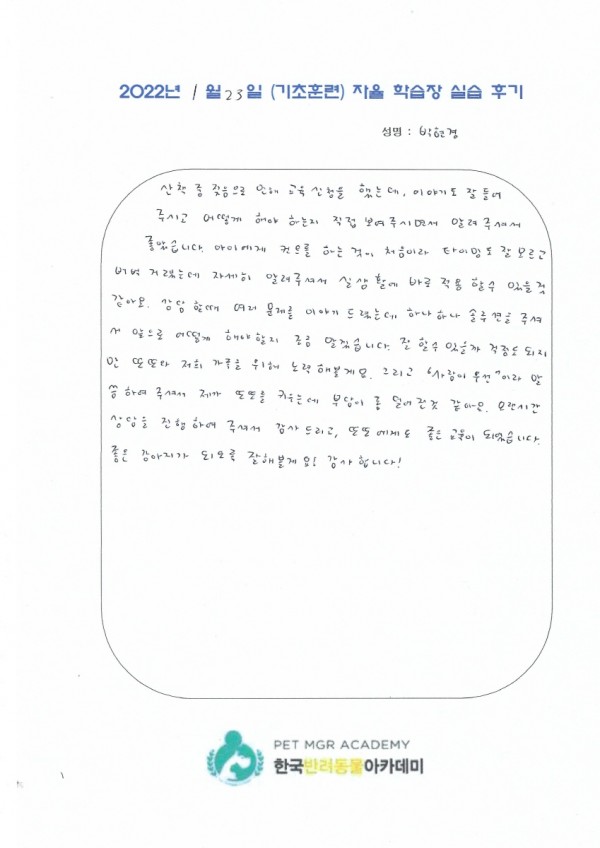 2022년 1월 23일 (기초훈련) 자율 학습장 실습 후기
성명 : 박현경
산책 중 짖음으로 인해 교육신청을 했는데, 이야기도 잘 들어
주시고 어떻게 해야 하는지 직접 보여주시면서 알려주셔서
좋았습니다. 아이에게 컨트롤 하는 것이 처음이라 타이밍도 잘 모르고
버벅 거렸는데 자세히 알려주셔서 실생활에 바로 적용 할수 있을 것
같아요. 상담 할때 여러 문제를 이야기 드렸는데 하나하나 솔루션을 주셔
서 앞으로 어떻게 해야할지 조금 알겠습니다. 잘 할수 있을까 걱정도 되지
만 또또와 저희 가족을 위해 노력해볼게요. 그리고 "사람이 우선"이라 말
씀하여 주셔서 제가 또또를 키우는데 부담이 좀 덜어진것 같아요. 오랜시간
상담을 진행하여 주셔서 감사드리고, 또또에게도 좋은 교육이 되었습니다.
좋은 강아지가 되도록 잘해볼게요! 감사합니다!
PET MGR ACADEMY
한국반려동물아카데미